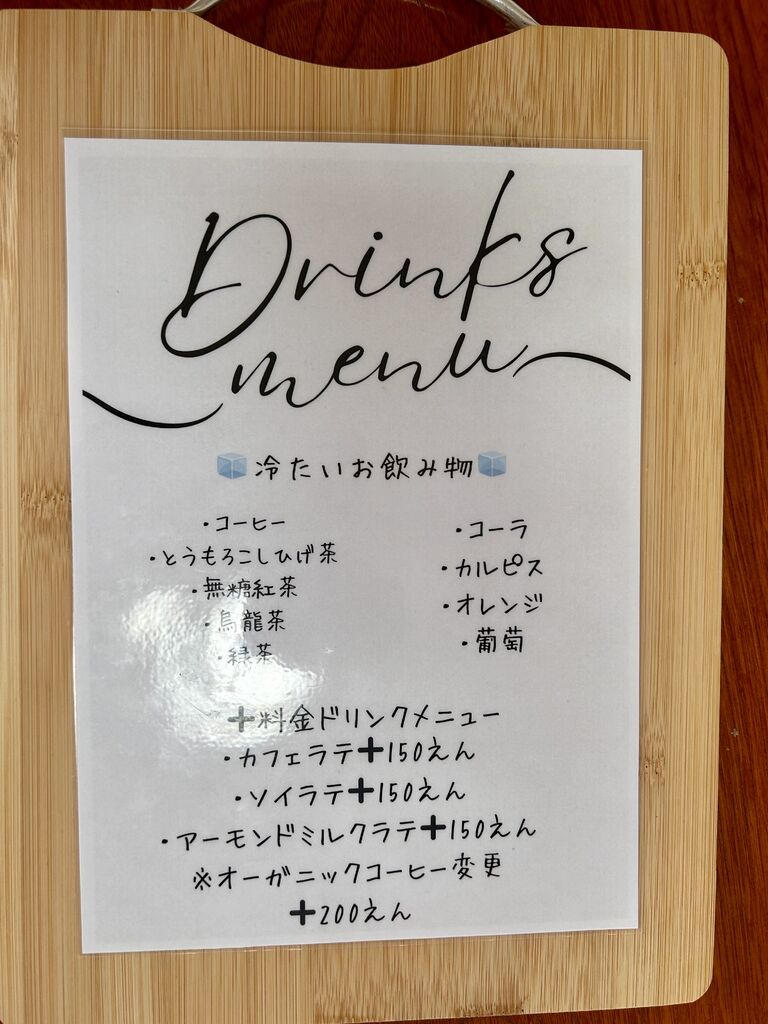 Drinks
menu
🧊冷たいお飲み物🧊
・コーヒー
・とうもろこしひげ茶
・無糖紅茶
・烏龍茶
・緑茶
・コーラ
・カルピス
・オレンジ
・葡萄
➕料金ドリンクメニュー
・カフェラテ➕150えん
・ソイラテ➕150えん
・アーモンドミルクラテ➕150えん
※オーガニックコーヒー変更
➕200えん